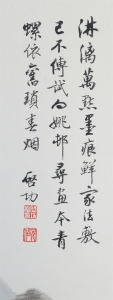 淋漓萬點墨痕鮮家法敷
已不傳試向姚邨尋畫本青
螺依舊瑣春烟
啓功